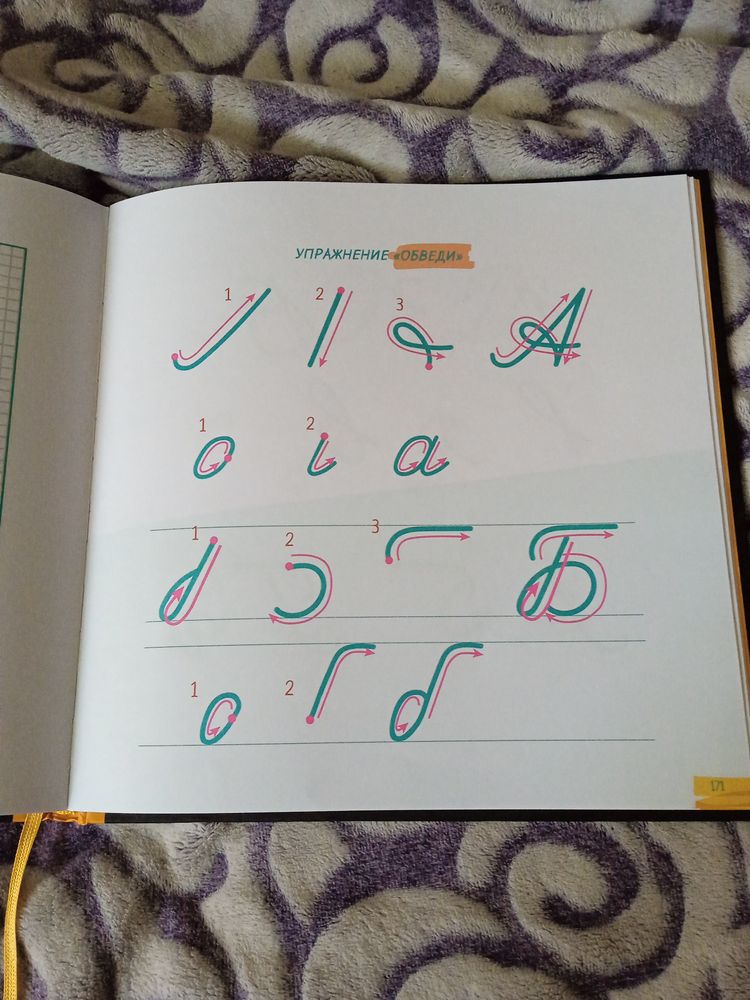 УПРАЖНЕНИЕ «ОБВЕДИ»
1 2 3 А
1 2 а
1 2 3 Б
1 2 б
171